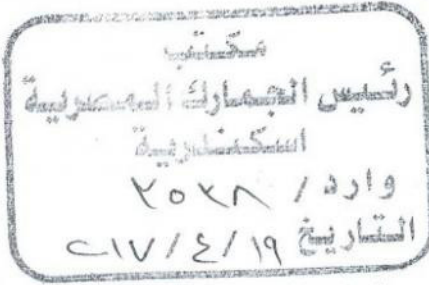 مكتب
رئيس الجمارك المصرية
اسكندرية
وارد / ٢٥٢٨
التاريخ ١٩/٤/٢١٧